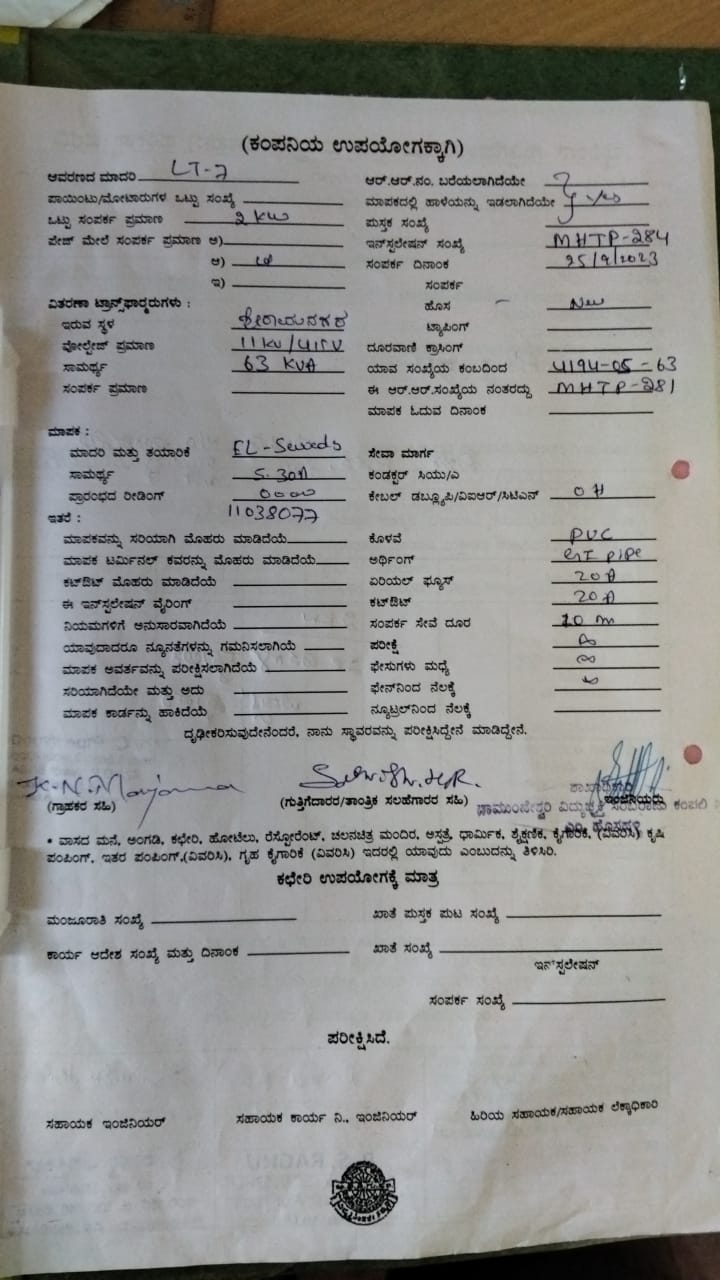 (ಕಂಪನಿಯ ಉಪಯೋಗಕ್ಕಾಗಿ)
ಆವರಣದ ಮಾದರಿ LT-7
ಪಾಯಿಂಟು/ಮೋಟಾರುಗಳ ಒಟ್ಟು ಸಂಖ್ಯೆ
ಒಟ್ಟು ಸಂಪರ್ಕ ಪ್ರಮಾಣ 2 KW
ಪೇಜ್ ಮೇಲೆ ಸಂಪರ್ಕ ಪ್ರಮಾಣ ಅ)
ಆ)
ಇ)
ವಿತರಣಾ ಟ್ರಾನ್ಸ್‌ಫಾರ್ಮರುಗಳು :
ಇರುವ ಸ್ಥಳ
ವೋಲ್ಟೇಜ್ ಪ್ರಮಾಣ 11KV/415V
ಸಾಮರ್ಥ್ಯ 63 KVA
ಸಂಪರ್ಕ ಪ್ರಮಾಣ
ಆರ್.ಆರ್.ನಂ. ಬರೆಯಲಾಗಿದೆಯೇ
ಮಾಪಕದಲ್ಲಿ ಹಾಳೆಯನ್ನು ಇಡಲಾಗಿದೆಯೇ yes
ಪುಸ್ತಕ ಸಂಖ್ಯೆ
ಇನ್‌ಸ್ಟಲೇಷನ್ ಸಂಖ್ಯೆ MHTP-284
ಸಂಪರ್ಕ ದಿನಾಂಕ 25/9/2023
ಸಂಪರ್ಕ
ಹೊಸ - New
ಟ್ಯಾಪಿಂಗ್
ದೂರವಾಣಿ ಕ್ರಾಸಿಂಗ್
ಯಾವ ಸಂಖ್ಯೆಯ ಕಂಬದಿಂದ 4194-05-63
ಈ ಆರ್.ಆರ್.ಸಂಖ್ಯೆಯ ನಂತರದ್ದು MHTP-281
ಮಾಪಕ ಓದುವ ದಿನಾಂಕ
ಮಾಪಕ :
ಮಾದರಿ ಮತ್ತು ತಯಾರಿಕೆ
ಸಾಮರ್ಥ್ಯ 5-30A
ಪ್ರಾರಂಭದ ರೀಡಿಂಗ್ 0000
ಇತರೆ : 11038077
ಮಾಪಕವನ್ನು ಸರಿಯಾಗಿ ಮೊಹರು ಮಾಡಿದೆಯೆ
ಮಾಪಕ ಟರ್ಮಿನಲ್ ಕವರನ್ನು ಮೊಹರು ಮಾಡಿದೆಯೆ
ಕಟ್‌ಔಟ್ ಮೊಹರು ಮಾಡಿದೆಯೆ
ಈ ಇನ್‌ಸ್ಟಲೇಷನ್ ವೈರಿಂಗ್
ನಿಯಮಗಳಿಗೆ ಅನುಸಾರವಾಗಿದೆಯೆ
ಯಾವುದಾದರೂ ನ್ಯೂನತೆಗಳನ್ನು ಗಮನಿಸಲಾಗಿಯೆ
ಮಾಪಕ ಅವರ್ತವನ್ನು ಪರೀಕ್ಷಿಸಲಾಗಿದೆಯೆ
ಸರಿಯಾಗಿದೆಯೇ ಮತ್ತು ಅದು
ಮಾಪಕ ಕಾರ್ಡನ್ನು ಹಾಕಿದೆಯೆ
ಸೇವಾ ಮಾರ್ಗ
ಕಂಡಕ್ಟರ್ ಸಿಯು/ಎ
ಕೇಬಲ್ ಡಬ್ಲ್ಯೂಪಿ/ವಿಐಆರ್/ಸಿಟಿಎಸ್ OH
ಕೊಳವೆ PVC
ಅರ್ಥಿಂಗ್ GI pipe
ಏರಿಯಲ್ ಫ್ಯೂಸ್ 20A
ಕಟ್‌ಔಟ್ 20A
ಸಂಪರ್ಕ ಸೇವೆ ದೂರ 10 m
ಪರೀಕ್ಷೆ
ಫೇಸುಗಳು ಮಧ್ಯೆ
ಫೇಸ್‌ನಿಂದ ನೆಲಕ್ಕೆ
ನ್ಯೂಟ್ರಲ್‌ನಿಂದ ನೆಲಕ್ಕೆ
ದೃಢೀಕರಿಸುವುದೇನೆಂದರೆ, ನಾನು ಸ್ಥಾವರವನ್ನು ಪರೀಕ್ಷಿಸಿದ್ದೇನೆ ಮಾಡಿದ್ದೇನೆ.
(ಗ್ರಾಹಕರ ಸಹಿ)
(ಗುತ್ತಿಗೆದಾರರ/ತಾಂತ್ರಿಕ ಸಲಹೆಗಾರರ ಸಹಿ)
ಇಂಜಿನಿಯರು
• ವಾಸದ ಮನೆ, ಅಂಗಡಿ, ಕಛೇರಿ, ಹೋಟೆಲು, ರೆಸ್ಟೋರೆಂಟ್, ಚಲನಚಿತ್ರ ಮಂದಿರ, ಆಸ್ಪತ್ರೆ, ಧಾರ್ಮಿಕ, ಶೈಕ್ಷಣಿಕ, ಕೈಗಾರಿಕೆ, (ವಿವರಿಸಿ) ಕೃಷಿ
ಪಂಪಿಂಗ್, ಇತರ ಪಂಪಿಂಗ್,(ವಿವರಿಸಿ), ಗೃಹ ಕೈಗಾರಿಕೆ (ವಿವರಿಸಿ) ಇದರಲ್ಲಿ ಯಾವುದು ಎಂಬುದನ್ನು ತಿಳಿಸಿರಿ.
ಕಛೇರಿ ಉಪಯೋಗಕ್ಕೆ ಮಾತ್ರ
ಮಂಜೂರಾತಿ ಸಂಖ್ಯೆ
ಖಾತೆ ಪುಸ್ತಕ ಪುಟ ಸಂಖ್ಯೆ
ಕಾರ್ಯ ಆದೇಶ ಸಂಖ್ಯೆ ಮತ್ತು ದಿನಾಂಕ
ಖಾತೆ ಸಂಖ್ಯೆ
ಇನ್‌ಸ್ಟಲೇಷನ್
ಸಂಪರ್ಕ ಸಂಖ್ಯೆ
ಪರೀಕ್ಷಿಸಿದೆ.
ಸಹಾಯಕ ಇಂಜಿನಿಯರ್
ಸಹಾಯಕ ಕಾರ್ಯ ನಿ., ಇಂಜಿನಿಯರ್
ಹಿರಿಯ ಸಹಾಯಕ/ಸಹಾಯಕ ಲೆಕ್ಕಾಧಿಕಾರಿ